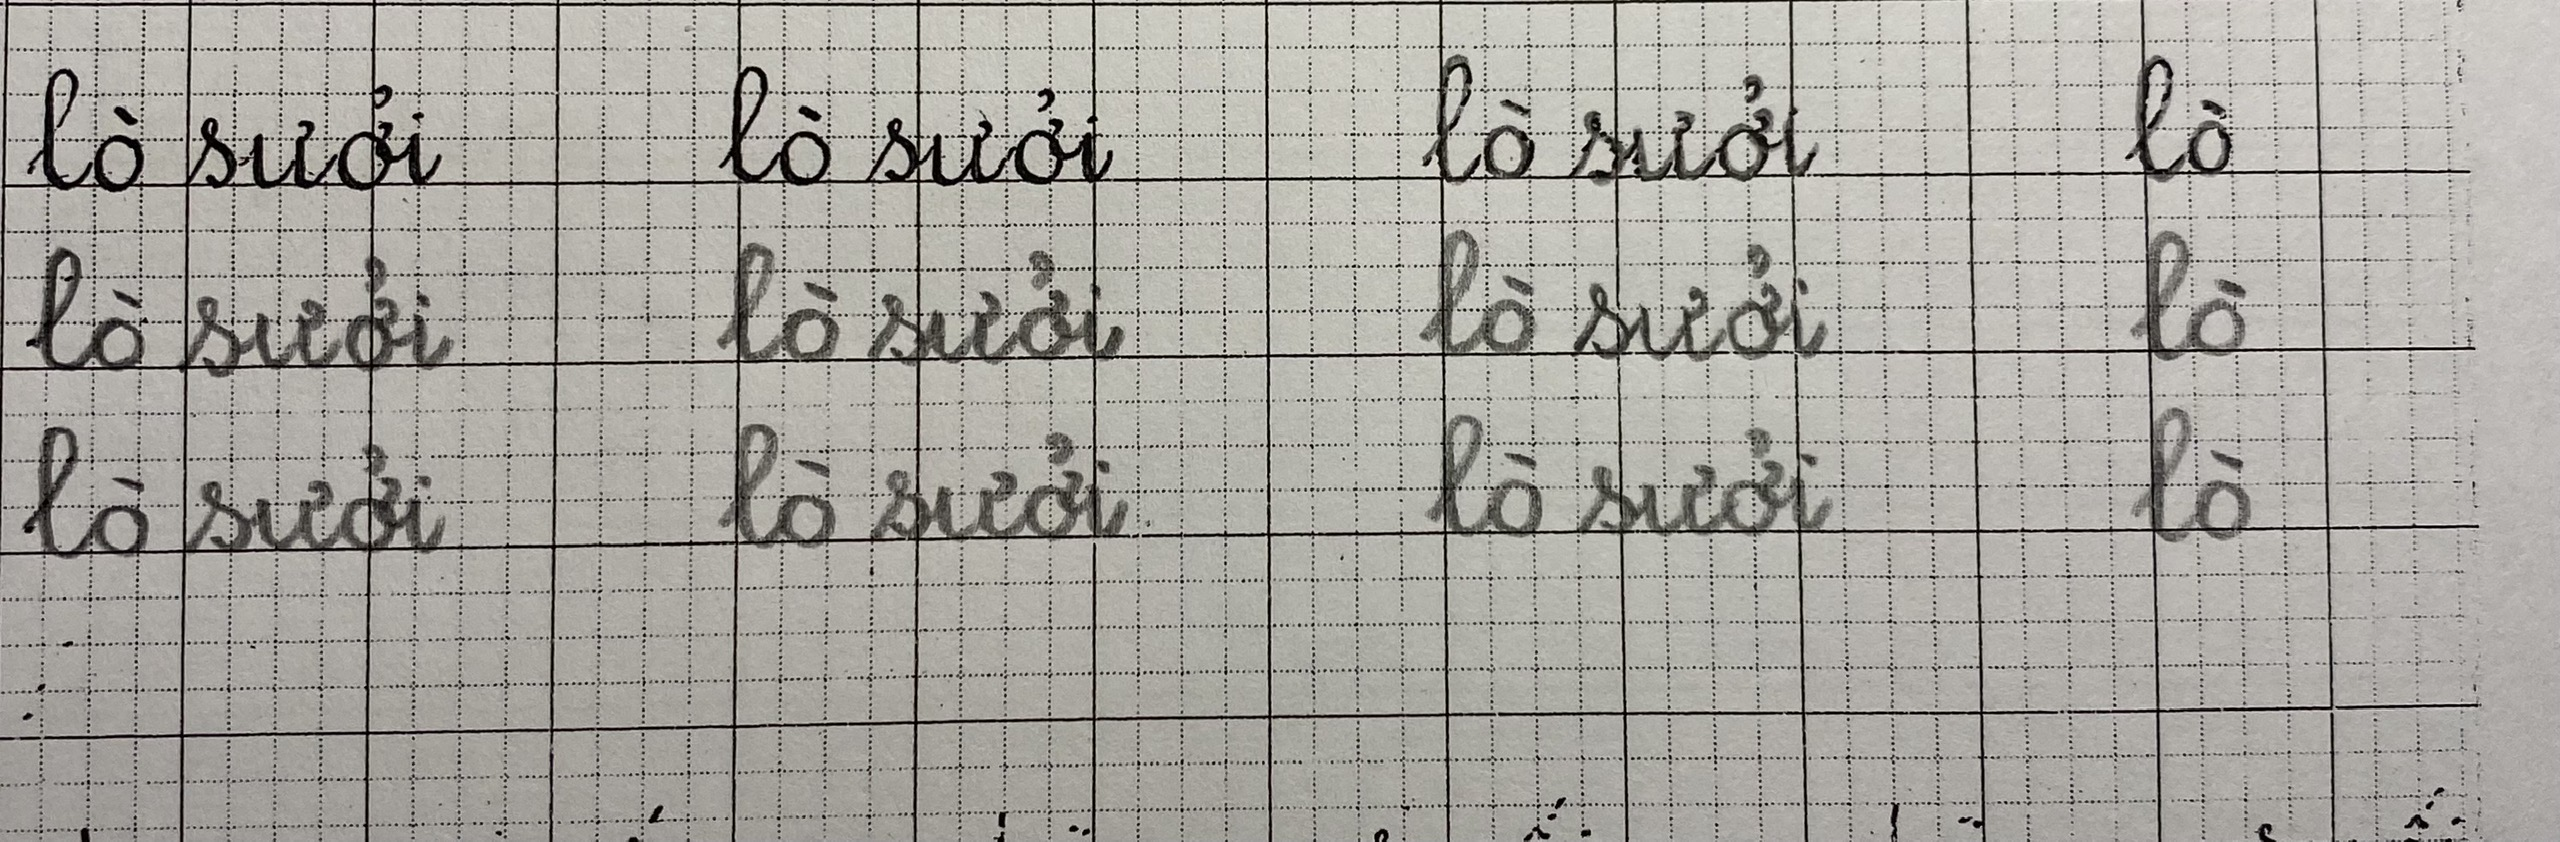 lò sưởi lò sưởi lò sưởi lò
lò sưởi lò sưởi lò sưởi lò
lò sưởi lò sưởi lò sưởi lò